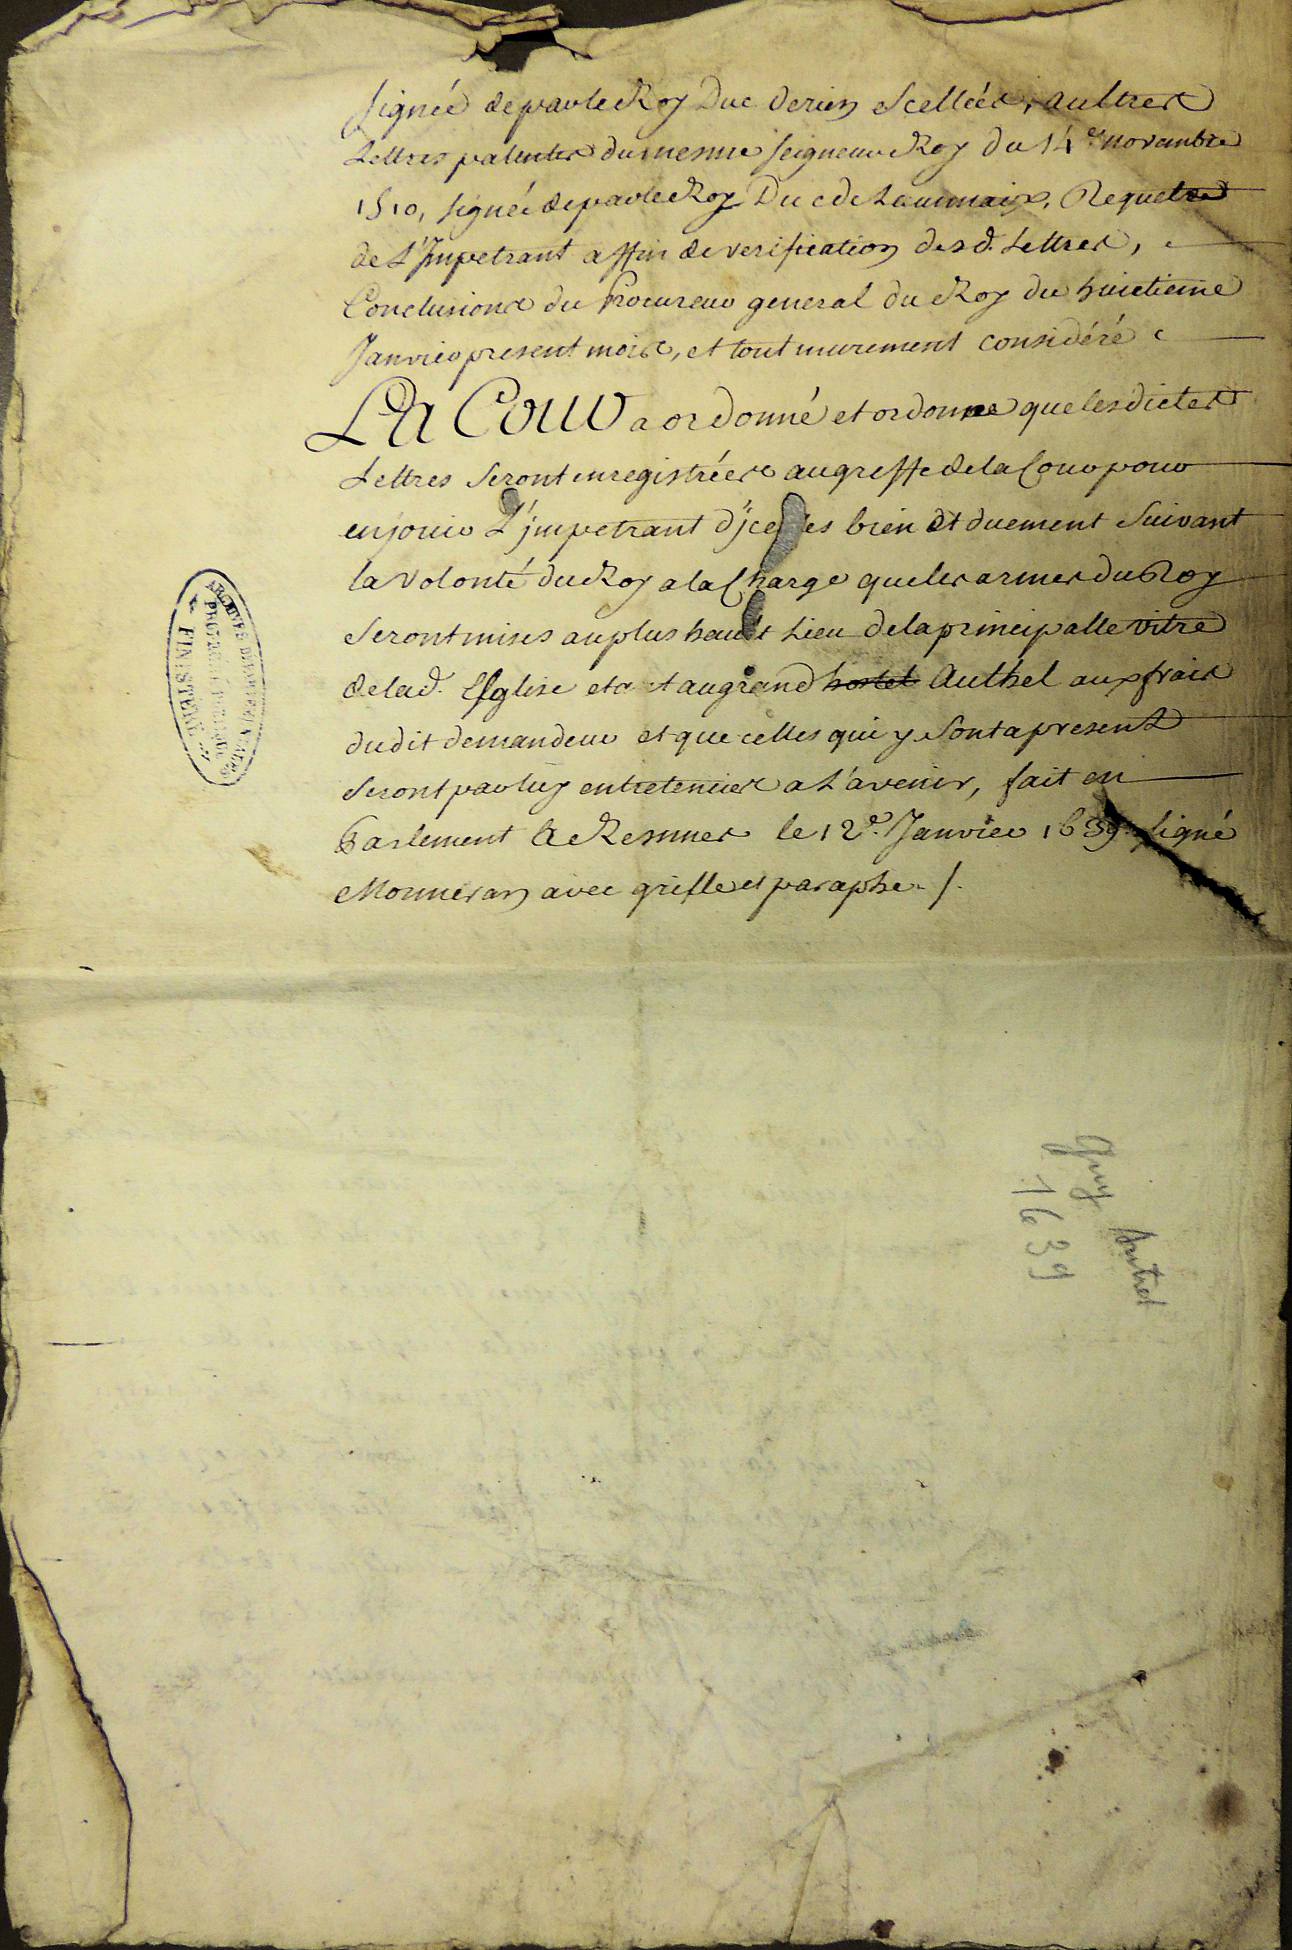 signée de par le Roy Duc derien Scellées, aultres
Lettres patentes du mesme seigneur Roy du 14e novembre
1510, signée de par le Roy Duc de Laumaix, Requeste
de L'Impetrant affin de verification desd. Lettres,
Conclusions du Procureur general du Roy du huictieme
Janvier present mois, et tout murement considéré
La Cour a ordonné et ordonne que lesdictes
Lettres Seront enregistrées au greffe de la Cour pour
en jouir L'jmpetrant d'jcelles bien et duement Suivant
la volonté du Roy a la Charge que les armes du Roy
Seront mises au plus hault Lieu de la principalle vitre
de lad. Esglise et au grand hostel Authel aux frais
dudit demandeur et que celles qui y Sont a present
Seront par luy entretenues a L'avenir, fait en
Parlement A Rennes le 12e. Janvier 1639. signé
Monneran avec grille et paraphe ./.
ARCHIVES DÉPARTEMENTALES
FINISTÈRE
Guy Autret
1639